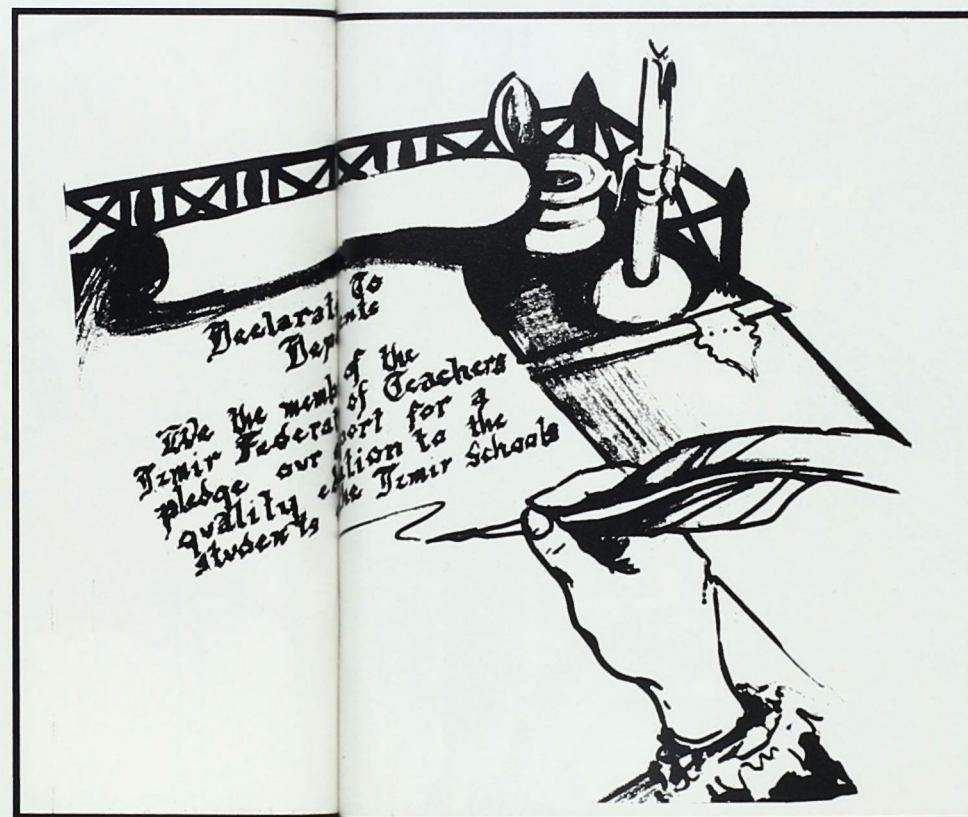 Declarat To
Dep nts
We the memb of the
Izmir Federat of Teachers
pledge our port for a
quality e ition to the
students he Izmir Schools